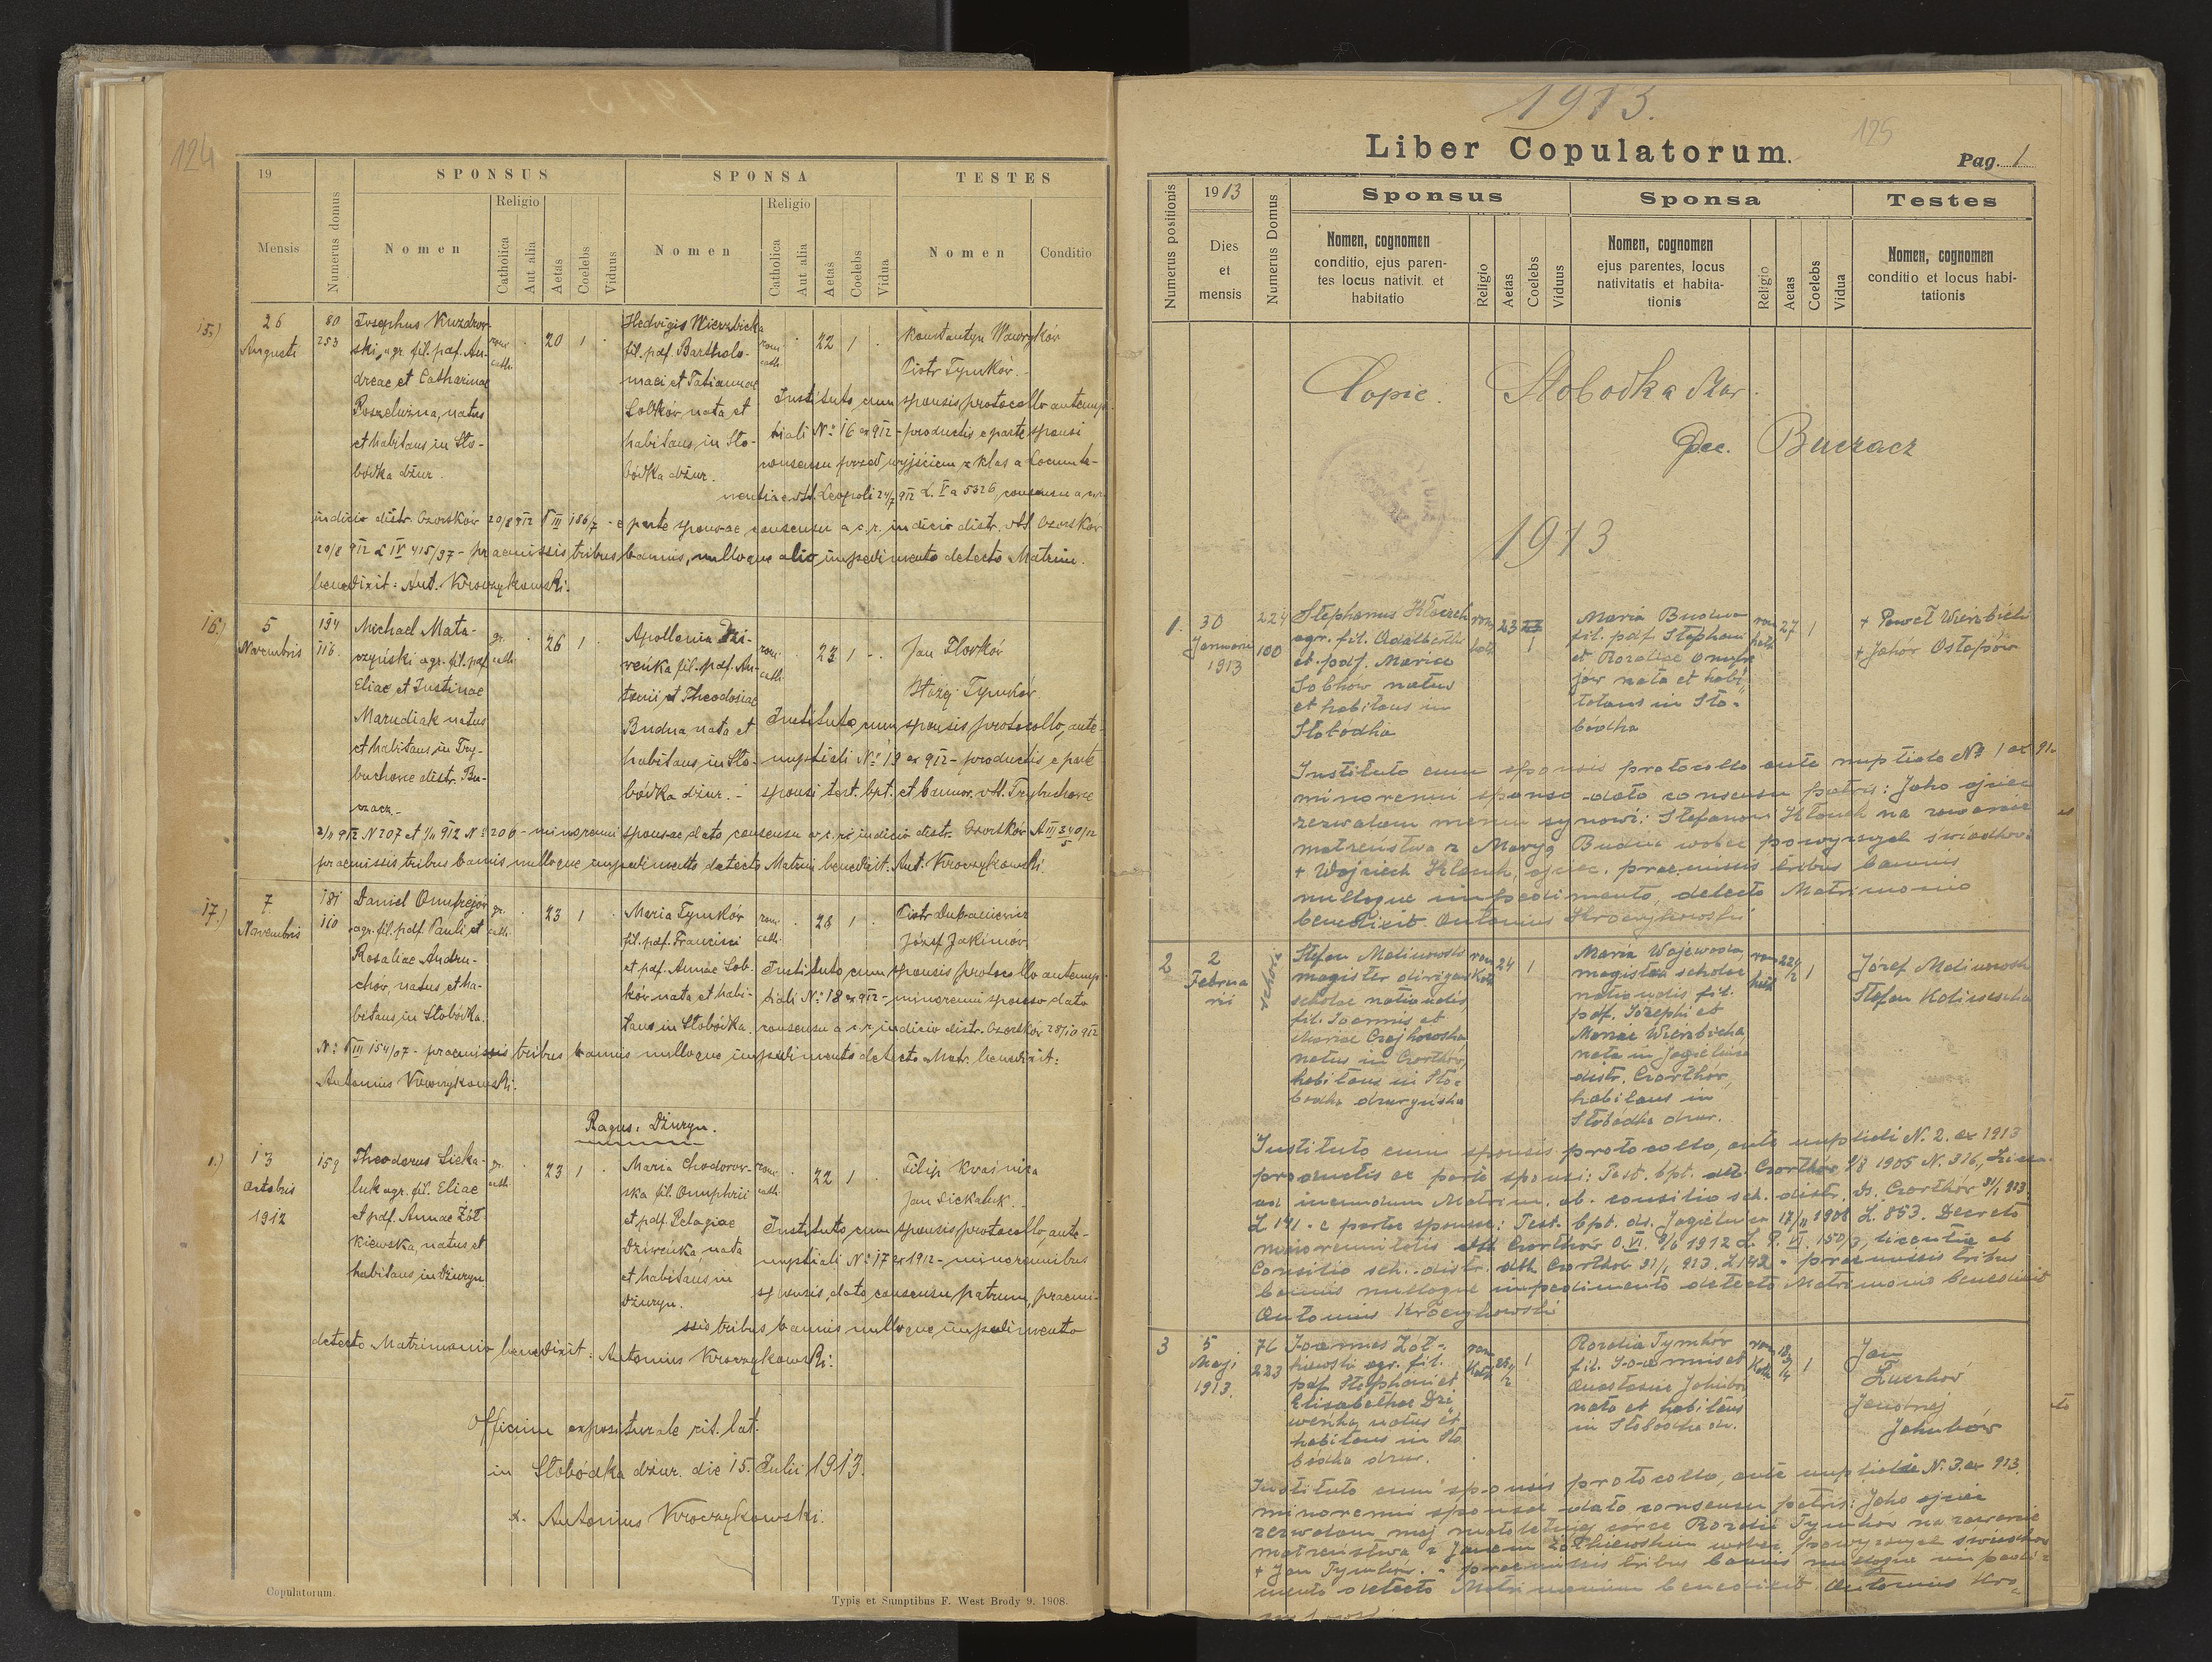 124
19
SPONSUS
SPONSA
TESTES
Mensis
Numerus domus
Nomen
Religio
Catholica
Aut alia
Aetas
Coelebs
Viduus
Nomen
Religio
Catholica
Aut alia
Aetas
Coelebs
Vidua
Nomen
Conditio
15.)
26
Augusti
80
253
Josephus
ski, agr. fil. pdf. An-
dreae et Catharinae
natus
et habitans in Sło-
bódka dżur.
rom.
cath.
20
1
Hedvigis Wierzbicka
fil. pdf. Bartholo-
maei et Tatiannae
Sobków nata et
habitans in Sło-
bódka dżur.
rom.
cath.
22
1
Konstantyn Wawryków
Piotr Tymków.
Instituto cum sponsis protocollo antenup-
tiali No 16 ex 912 - productis e parte sponsi
consensu przed wyjściem z klas a Locumte-
nentiae dtt. Leopoli 24/7 912 L. Va 5326, consensu a c.r.
indicio distr. Czortków 20/8 912 P III 186/7 - e parte sponsae consensu a c.r. indicio distr. dtt Czortków
20/8 912 L IV 415/97 - praemissis tribus bannis, nulloque alio impedimento detecto Matrim.
benedixit: Ant. Kroczykowski.
16.)
5
Novembris
194
116.
Michael Mata-
czyński agr. fil. pdf
Eliae et Justinae
Marudiak natus
et habitans in Try-
buchowce distr. Bu-
czacz.
gr.
cath.
26
1
Apollonia Dzi-
weńka fil. pdf. An-
tonii et Theodosiae
Budna nata et
habitans in Sło-
bódka dżur. -
rom.
cath.
23
1
Jan Florków
Tymków.
Instituto cum sponsis protocollo, ante-
nuptiali No 19 ex 912 - productis e parte
sponsi test. bpt. et bannor. dtt. Trybuchowce
2/11 912 N 207 et 4/11 912 No 206 - minorenni sponsae dato consensu a c.r. indicio distr. Czortków A III 340/12
praemissis tribus bannis nulloque impedimento detecto Matrim benedixit: Ant. Kroczykowski.
17.)
7
Novembris
181
110
Daniel Onufrejów
agr. fil. pdf. Pauli et
Rosaliae Andru-
chów, natus et ha-
bitans in Słobódka.
gr.
cath.
23
1
Maria Tymków
fil. pdf. Francisci
et pdf. Annae Sob-
ków nata et habi-
tans in Słobódka.
rom.
cath.
28
1
Piotr
Józef Jakimów
Instituto cum sponsis protocollo antenup-
tiali No 18 ex 912 - minorenni sponso dato
consensu a c.r. indicio distr. Czortków 28/10 912
No P III 154/07 - praemissis tribus bannis nulloque impedimento detecto Matr. benedixit:
Antonius Kroczykowski.
Pagus: Dżuryn.
1.)
13
Octobris
1912
159
Theodorus Sicka-
luk agr. fil. Eliae
et pdf. Annae Żół-
kiewska, natus et
habitans in Dżuryn
gr.
cath.
23
1
Maria Chodorow-
ska fil. Onuphrii
et pdf. Pelagiae
Dziweńka nata
et habitans in
Dżuryn.
rom.
cath.
22
1
Filip Kwaśnica
Jan Sickaluk.
Instituto cum sponsis protocollo, ante-
nuptiali No 17 ex 1912 - minorennibus
sponsis, dato consensu patrum, praemi-
ssis tribus bannis nulloque impedimento
detecto Matrimonio benedixit: Antonius Kroczykowski.
Officium expositurale rit. lat.
in Słobódka dżur. die 15. Julii 1913.
X. Antonius Kroczykowski.
Copulatorum.
Typis et Sumptibus F. West Brody 9. 1908.
1913.
125
Liber Copulatorum.
Pag. 1
Numerus positionis
1913
Dies
et
mensis
Numerus Domus
Sponsus
Nomen, cognomen
conditio, ejus paren-
tes locus nativit. et
habitatio
Religio
Aetas
Coelebs
Viduus
Sponsa
Nomen, cognomen
ejus parentes, locus
nativitatis et habita-
tionis
Religio
Aetas
Coelebs
Vidua
Testes
Nomen, cognomen
conditio et locus habi-
tationis
Copie. Słobodka
Dec. Buczacz
1913
1.
30
Januarii
1913
224
100
Stephanus Kłonek
agr. fil. Adalberti
et pdf. Mariae
Sobków natus
et habitans in
Słobódka
rom
kat
23
1
Maria Budna
fil. pdf Stephani
et Rozaliae Onufre
jów nata et habi
tans in Sło-
bódka
rom
kat
27
1
+ Paweł Wierzbicki
+ Ostapów
Instituto cum sponsis protocollo ante nuptiale No 1 ex 91
minorenni sponso dato consensu patris: Jako ojciec
zezwalam memu synowi: Stefanowi na zawarcie
małżeństwa z Maryą Budną wobec powyższych świadków
+ Wojciech ojciec, praemissis tribus bannis
nulloque impedimento, detecto Matrimonio
benedixit Antonius Kroczykowski
2
2
Februa
rii
schola
Stefan Malinowski
magister dirigens
scholae nationalis,
fil. Joannis et
Mariae
natus in Czortków,
habitans in Sło-
bodka dzuryńska
rom
Kat
24
1
Maria Wojewoda
magistra scholae
nationalis fil.
pdf. Josephi et
Mariae Wierzbicka,
nata in Jagielnica
distr. Czortków,
habitans in
Słobódka dżur.
rom
kat
22 1/2
1
Józef Malinowski
Stefan
Instituto cum sponsis protocollo, ante nuptiali N. 2. ex 1913
productis ex parte sponsi: Test. bpt. dtt. Czortków 1905 N. 316,
ad ineundum Matrim. ab. consilio sch. distr. Czortków 31/1 913
L 141 - e parte sponsae: Test. bpt. dt. Jagielnica 17/11 1908 L. 853. Decreto
minorennitatis dtt Czortków O.VI. 1912 L. P. VI. 150/3, licentia ab
Consilio sch. distr. dtt Czortków 31/1 913. L 142 - praemissis tribus
bannis nulloque impedimento detecto Matrimonio benedixit
Antonius Kroczykowski
3
5
Maji
1913.
76
223
Joannes Żół-
kiewski agr. fil.
pdf Stephani et
Elisabethae Dzi
weńka natus et
habitans in Sło
bódka dzur.
rom
Kat
24 1/2
1
Rozalia Tymków
fil. Joannis et
Anastasiae Jakubów
nata et habitans
in Słobódka dz.
rom
Kat
18 3/4
1
Jan
Jędrzej
Jakubów
Instituto cum sponsis protocollo, ante nuptiale N. 3 ex 913.
minorenni sponsae dato consensu patris: Jako ojciec
zezwalam mej małoletniej córce Rozalii Tymków na zawarcie
małżeństwa z Janem Żółkiewskim wobec powyższych świadków
+ Jan Tymków. - praemissis tribus bannis nulloque impedi-
mento detecto Matrimonium benedixit Antonius Kro-